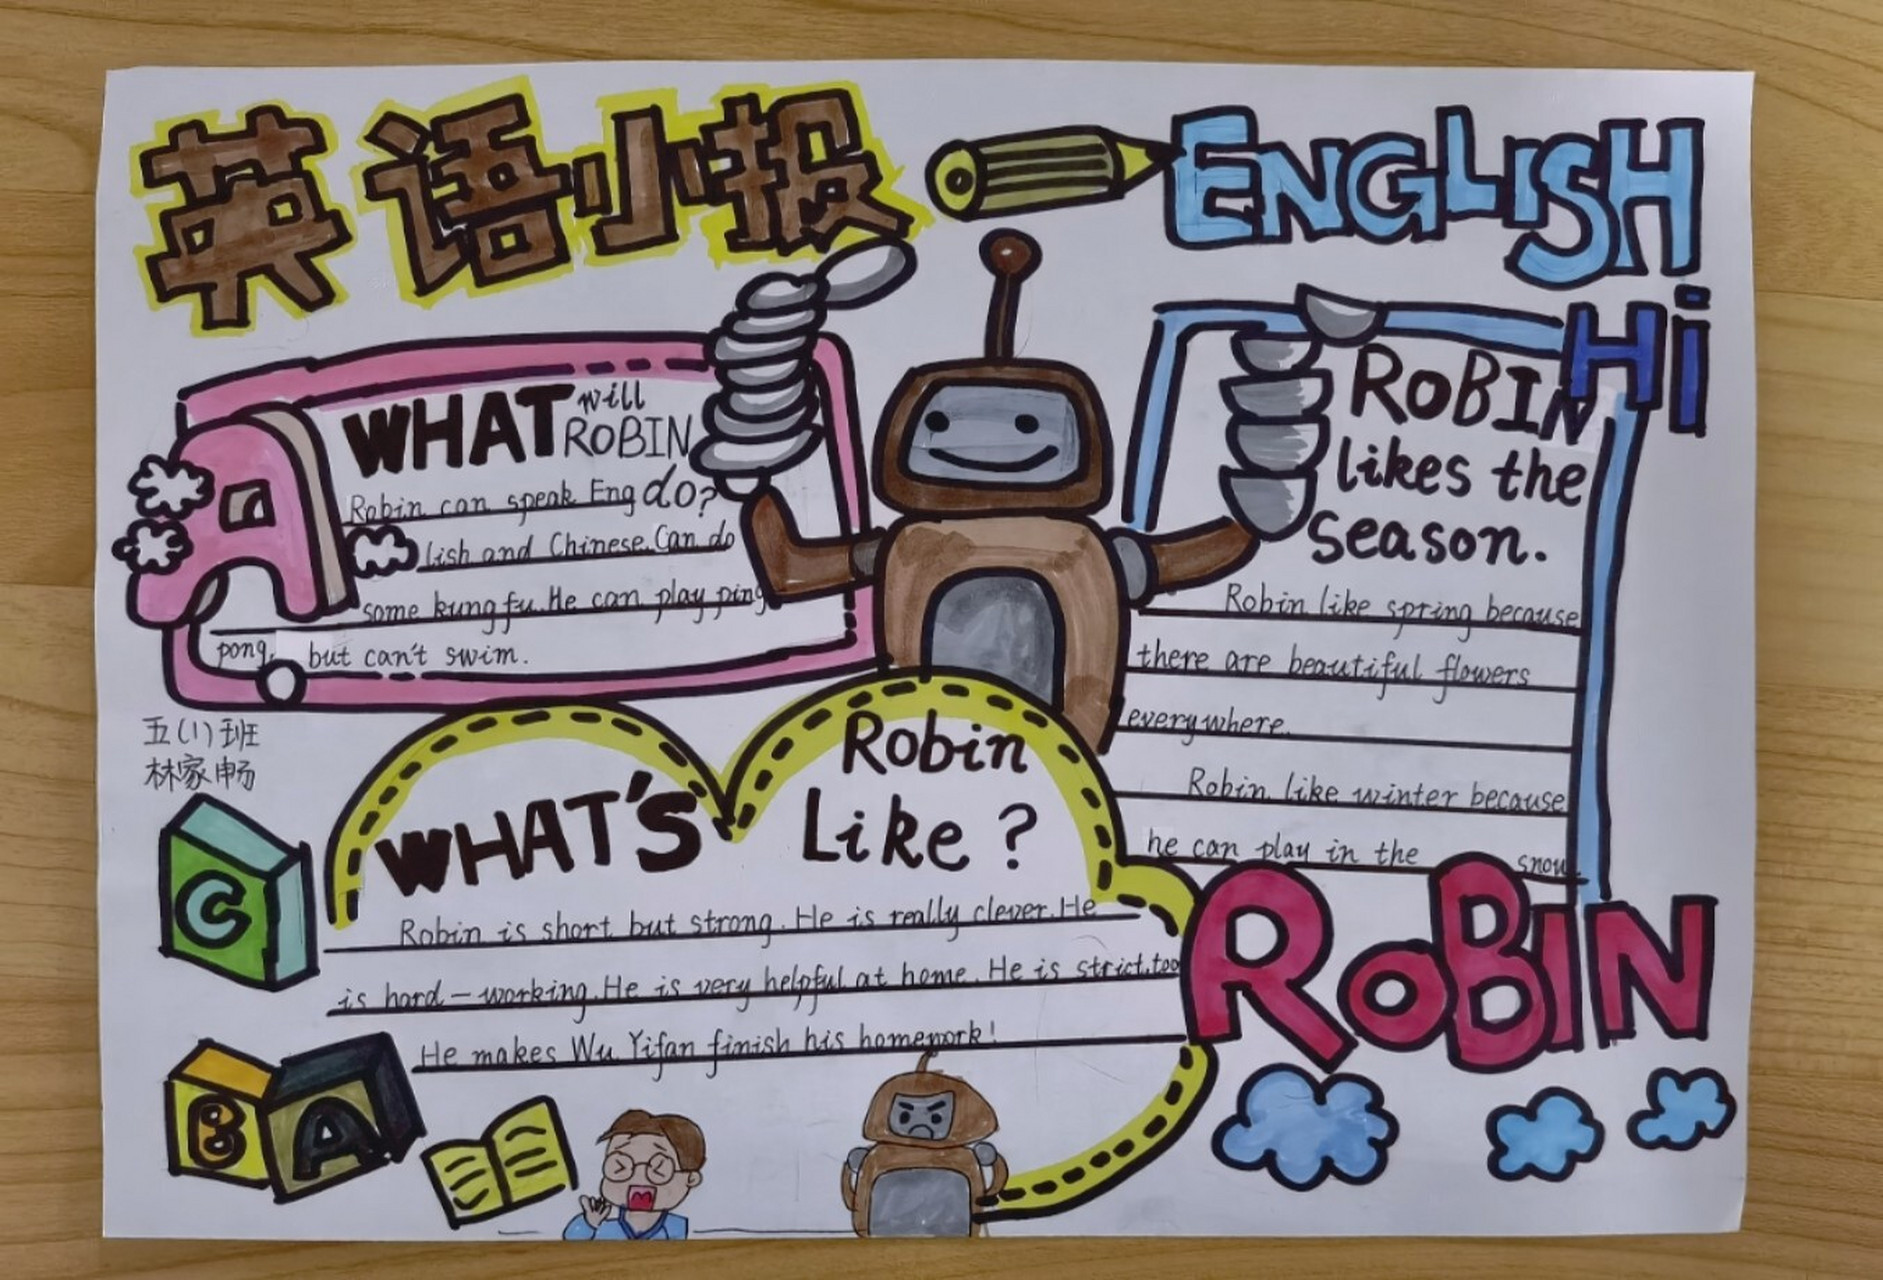 英语小报
ENGLISH
Hi
WHAT will
ROBIN
do?
Robin can speak Eng
lish and Chinese.Can do
some kung fu.He can play ping
pong, but can't swim.
ROBIN
likes the
season.
Robin like spring because
there are beautiful flowers
everywhere.
Robin like winter because
he can play in the snow.
五(1)班
林家畅
WHAT'S Robin
Like?
Robin is short but strong.He is really clever.He
is hard-working.He is very helpful at home.He is strict,too
He makes Wu Yifan finish his homework!
ROBIN
C
B A